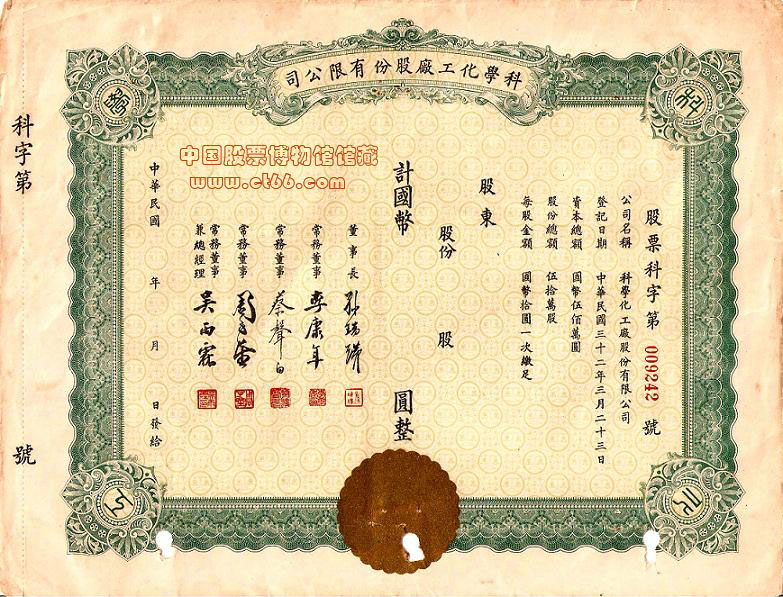 科學化工廠股份有限公司
科
學
化
工
股票科字第 009242 號
公司名稱 科學化工廠股份有限公司
登記日期 中華民國三十二年三月二十三日
資本總額 國幣伍佰萬圓
股份總額 伍拾萬股
每股金額 國幣拾圓一次繳足
股東
股份 股
計國幣 圓整
董事長
常務董事 李康年
常務董事 蔡聲白
常務董事
常務董事
兼總經理 吳雨霖
中華民國 年 月 日發給
科字第 號
中国股票博物馆馆藏
www.ct66.com